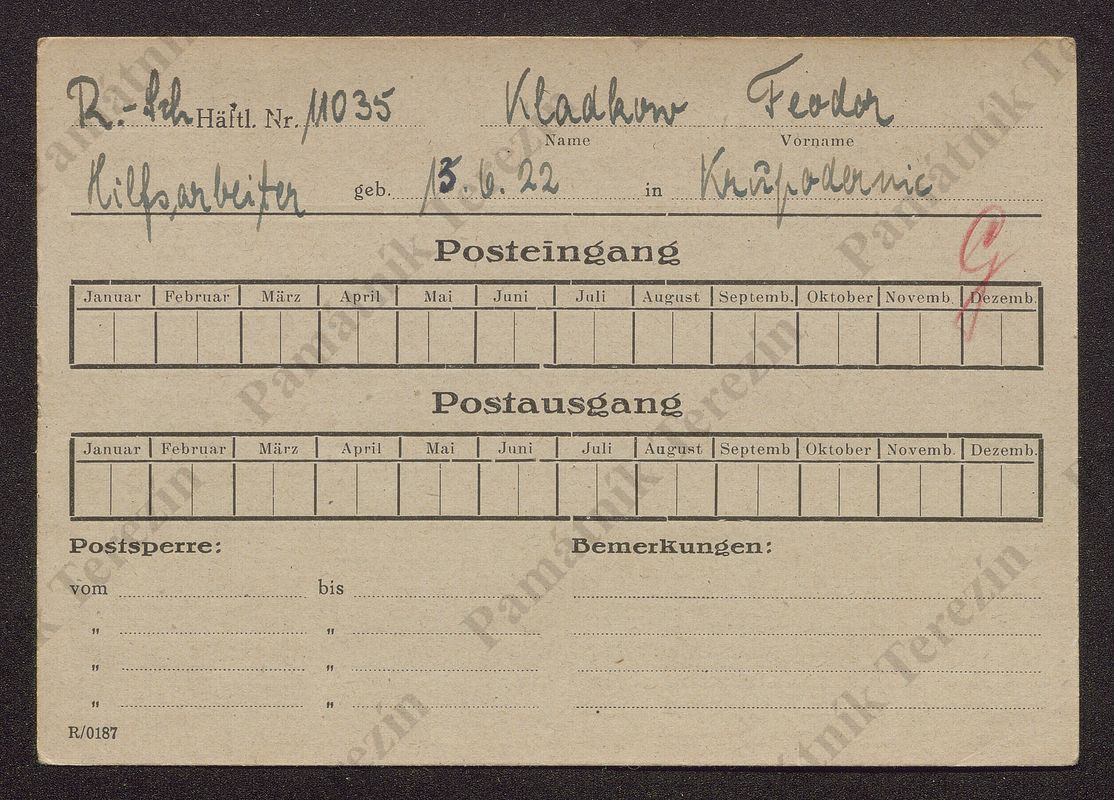 R.-Sch Häftl. Nr. 11035 Kladkow Feodor
Name Vorname
Hilfsarbeiter geb. 15.6.22 in Krŭpodernic
G
Posteingang
Januar Februar März April Mai Juni Juli August Septemb. Oktober Novemb. Dezemb.
Postausgang
Januar Februar März April Mai Juni Juli August Septemb Oktober Novemb. Dezemb.
Postsperre: Bemerkungen:
vom bis
" "
" "
" "
R/0187
Památník Terezín